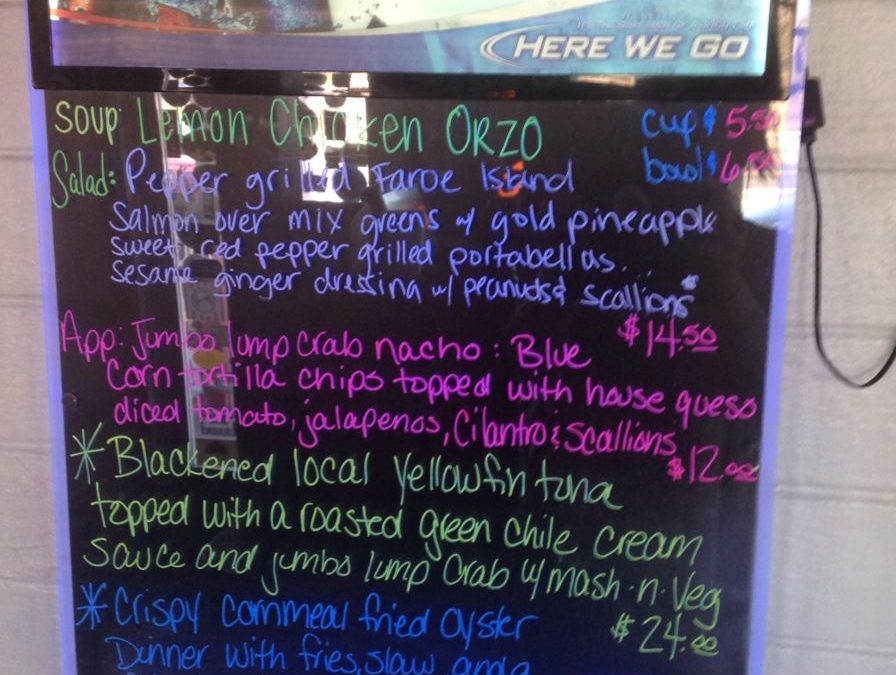 HERE WE GO
Soup: Lemon Chicken Orzo cup $ 5.50
bowl $ 6.50
Salad: Pepper grilled Faroe Island
Salmon over mix greens w/ gold pineapple
sweet red pepper grilled portabellas...
Sesame ginger dressing w/ peanuts & scallions*
$14.50
App: Jumbo lump crab nacho: Blue
Corn tortilla chips topped with house queso
diced tomato, jalapenos, Cilantro & Scallions
$12.00
* Blackened local yellowfin tuna
topped with a roasted green chile cream
sauce and jumbo lump crab w/ mash-n-veg
$24.00
* Crispy cornmeal fried oyster
Dinner with fries, slaw and a